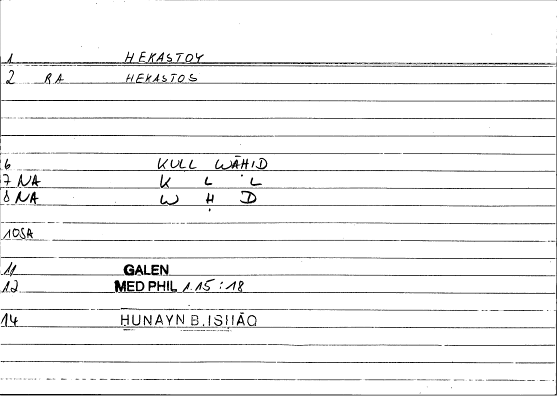 1 HEKASTOY
2 RA HEKASTOS
6 KULL WĀḤID
7 NA K L L
8 NA W Ḥ D
10SA
11 GALEN
12 MED PHIL 1.15:18
14 HUNAYN B.ISḤĀQ